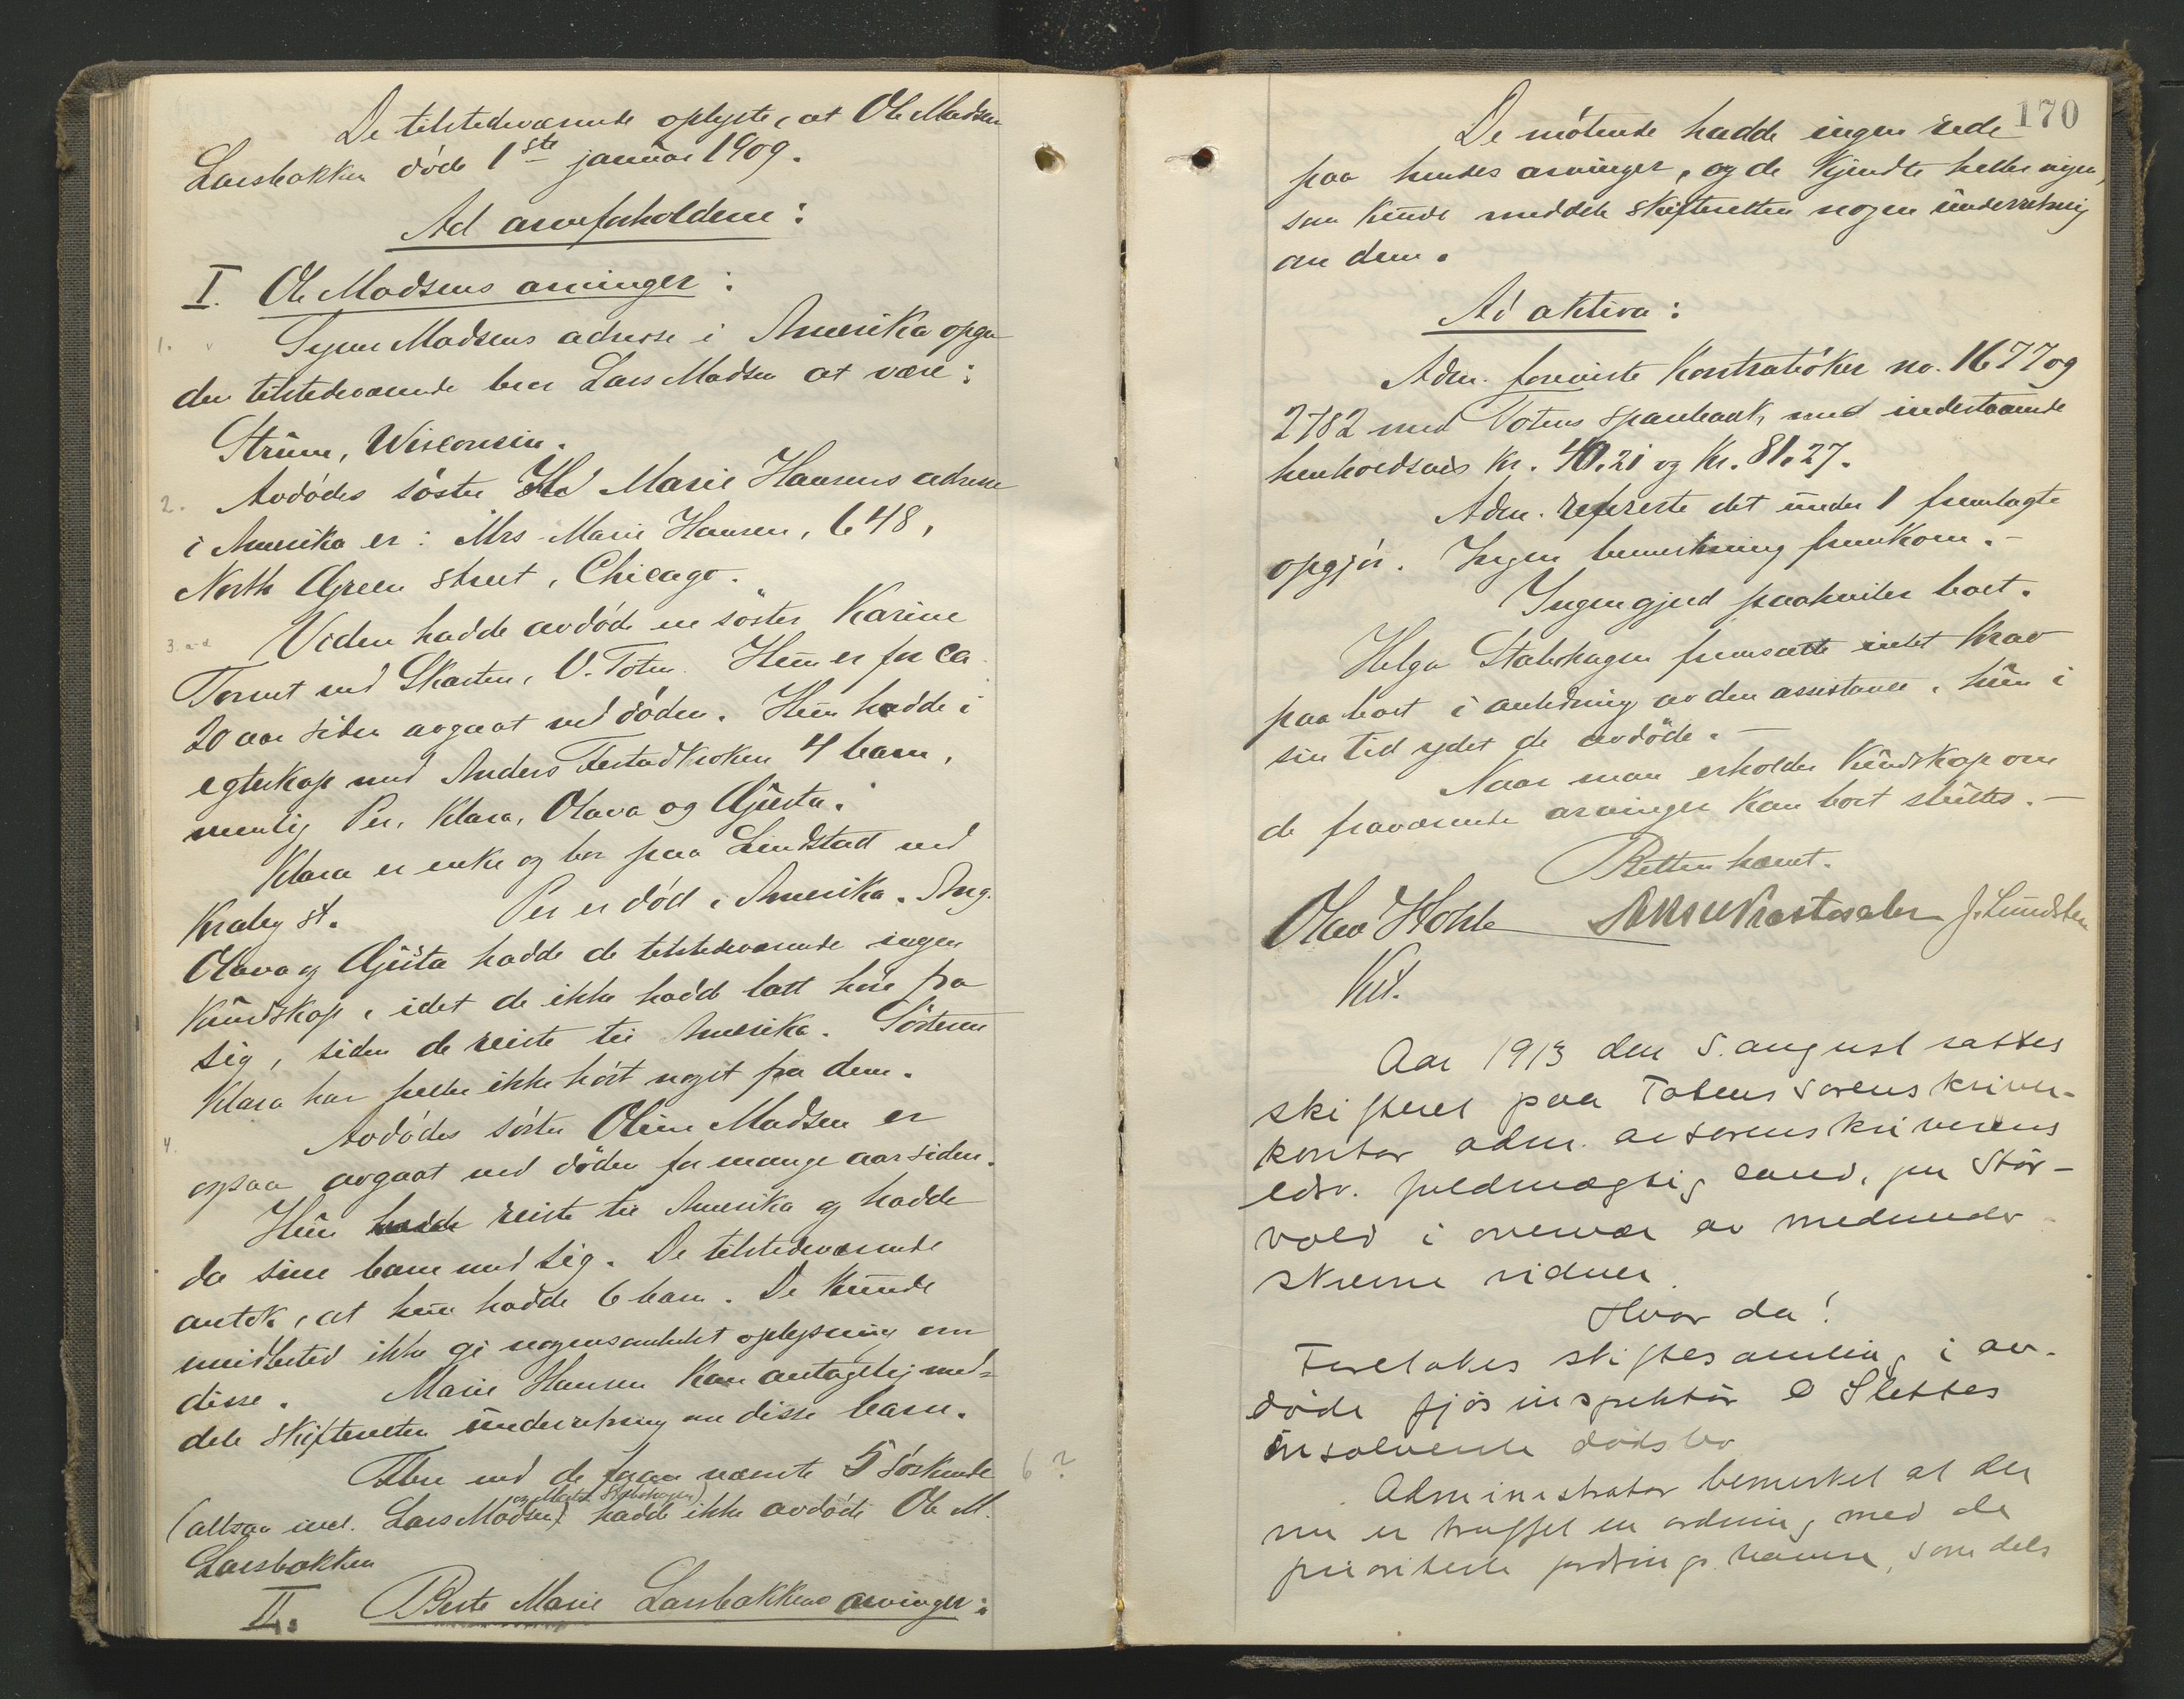 De tilstedeværende oplyste, at Ole Madsen
Larsbakken døde 1ste januar 1909.
Ad arveforholdene:
I. Ole Madsens arvinger:
1. Syver Madsens adresse i Amerika opga
den tilstedeværende bror Lars Madsen at være:
Strum, Wisconsin.
2. Avdødes søster Marie Hansens adresse
i Amerika er: Mrs Marie Hansen, 648,
North Green Street, Chicago.
3. a-d Viden hadde avdøde en søster Karine
Tornet ved Skarten, V. Toten. Hun er for ca
20 aar siden avgaat ved døden. Hun hadde i
egteskap med Anders 4 barn,
nemlig Per, Klara, Olava og Gusta.
Klara er enke og bor paa Lindstad ved
Kraby st. Per er død i Amerika. Ang.
Olava og Gusta hadde de tilstedeværende ingen
kundskap, idet de ikke hadde latt høre fra
sig, siden de reiste til Amerika. Søsteren
Klara har heller ikke hørt noget fra dem.
4. Avdødes søster Oline Madsen er
ogsaa avgaat ved døden for mange aar siden.
Hun hadde reiste til Amerika og hadde
da sine barn med sig. De tilstedeværende
antok, at hun hadde 6 barn. De kunde
imidlertid ikke gi nogensomhelst oplysning om
disse. Marie Hansen kan antagelig med-
dele skifteretten underretning om disse barn.
Flere end de foran nævnte 5 søskende 6?
og Marte Stabshagen)
(altsaa incl. Lars Madsen) hadde ikke avdøde Ole M.
Larsbakken
II. Berte Marie Larsbakkens arvinger:
170
De møtende hadde ingen rede
paa hendes arvinger, og de kjendte heller ingen,
som kunde meddele skifteretten nogen underretning
om dem.
Ad aktiva:
Adm. foreviste kontrabøker no. 1677 og
2782 med Totens Sparebank, med indestaaende
henholdsvis Kr. 40.21 og Kr. 81.27.
Adm. refererte det under 1 fremlagte
opgjør. Ingen bemerkning fremkom.-
Ingen gjeld paahviler boet.
Helga Stabshagen fremsatte intet krav
paa boet i anledning av den assistance, hun i
sin tid ydet de avdøde.-
Naar man erholder kundskap om
de fraværende arvinger kan boet sluttes.-
Retten hævet.
Olav Hohle J. Lundsten
Vit.
Aar 1913 den 5. august sattes
skifteret paa Totens sorenskriver-
kontor adm. av sorenskriverens
edsv. fuldmægtig cand. jur Stør-
vold i overvær av medunder-
skrevne vidner.
Hvor da!
Foretokes skiftesamling i av-
døde fjøsinspektør O Slettes
insolvente dødsbo
Administrator bemerket at der
nu er truffet en ordning med de
prioriterte fordringshavere, som dels